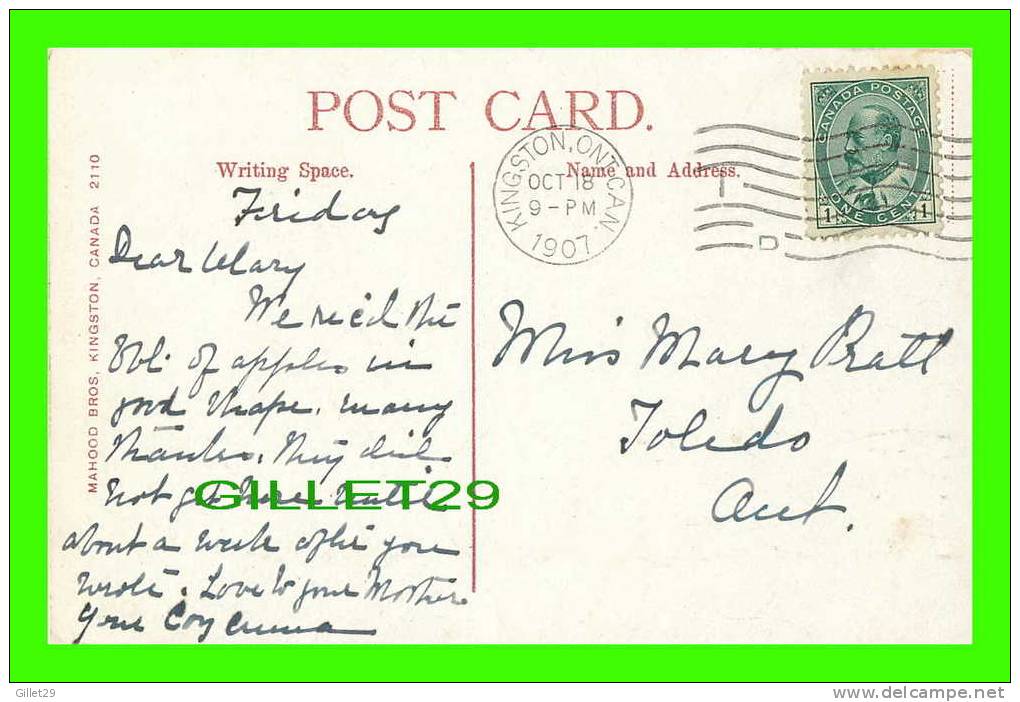 POST CARD.
Writing Space.
Name and Address.
KINGSTON, ONT. CAN.
OCT 18
9 - PM
1907
D
CANADA POSTAGE
1 ONE CENT 1
MAHOOD BROS, KINGSTON, CANADA 2110
Friday
Dear Mary
We rec'd the
Bbl. of apples in
good shape. many
thanks. They did
not get here until
about a week after you
wrote. Love to your Mother
Your
Miss Mary Pratt
Toledo
Ont.
GILLET29
Gillet29
http://www.delcampe.net